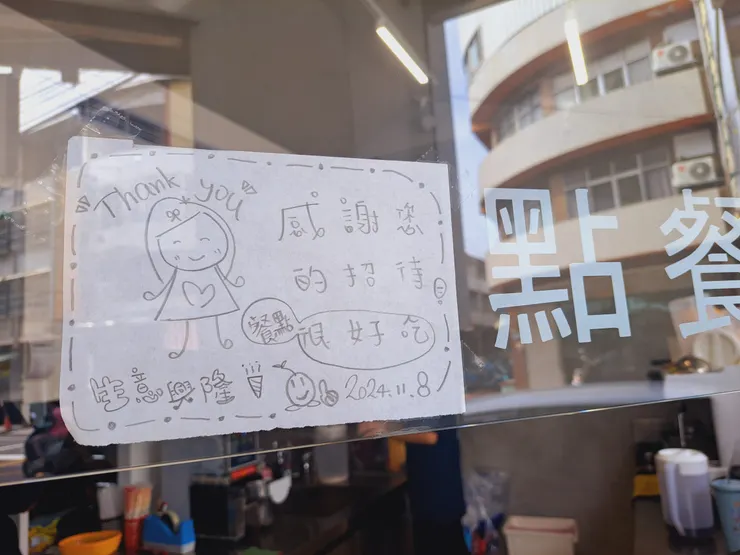 Thank you
感謝您
的招待
餐點很好吃
生意興隆 2024.11.8
點餐